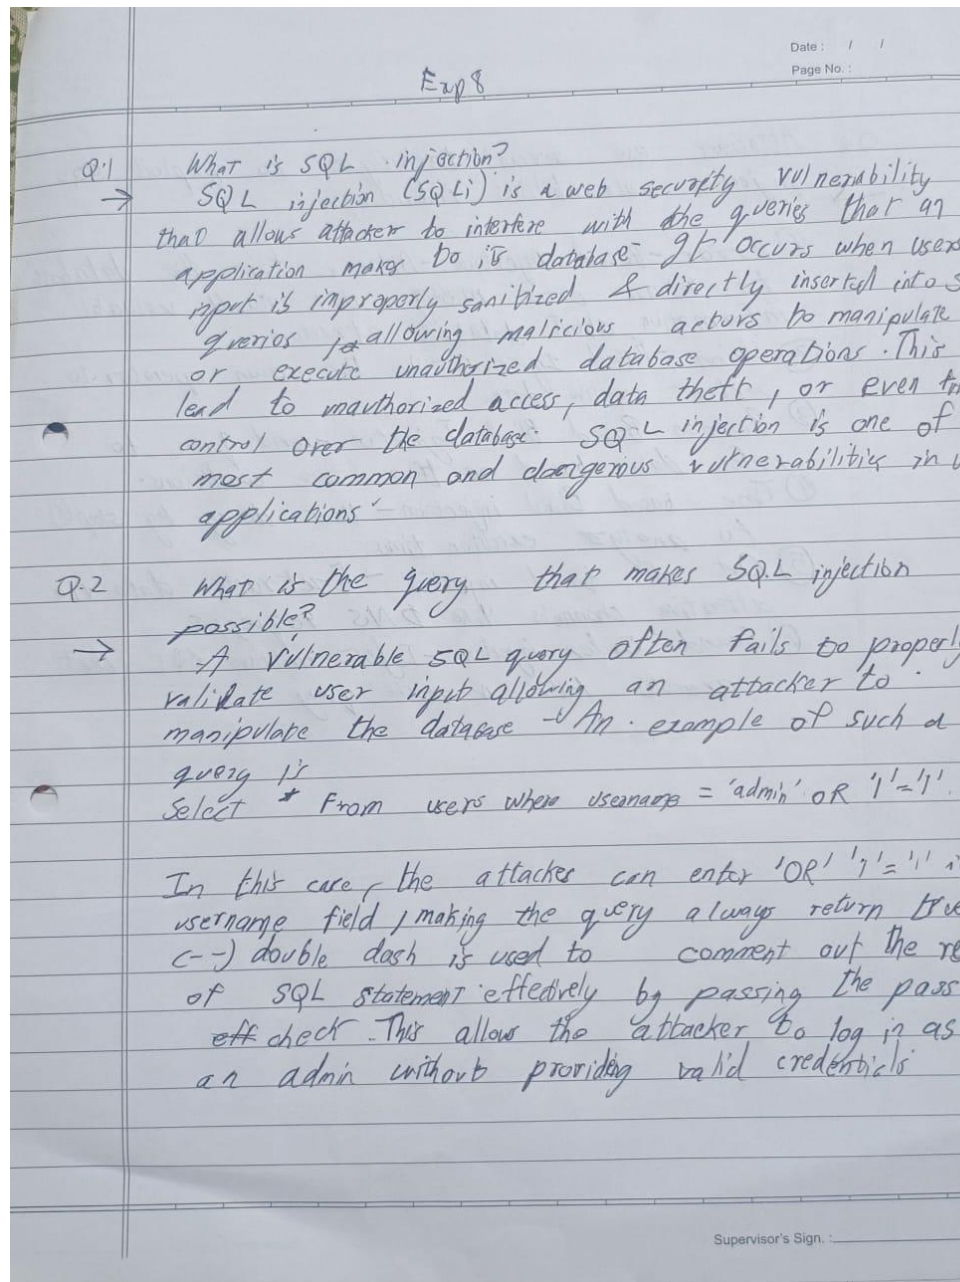 Date : / /
Page No. :
Exp 8
Q.1 What is SQL injection?
→ SQL injection (SQLi) is a web security vulnerability
that allows attacker to interfere with the queries that an
application makes to its database It occurs when user
input is improperly sanitized & directly inserted into S
queries, allowing malicious actors to manipulate
or execute unauthorized database operations. This
lead to unauthorized access, data theft, or even
control over the database. SQL injection is one of
most common and dangerous vulnerabilities in
applications
Q.2 What is the query that makes SQL injection
possible?
→ A vulnerable SQL query often fails to properl
validate user input allowing an attacker to
manipulate the database An example of such a
query is
Select * From users where username = 'admin' OR '1'='1'.
In this case, the attacker can enter 'OR' '1'='1' i
username field, making the query always return true
(--) double dash is used to comment out the re
of SQL statement effectively by passing the pass
eff check. This allow the attacker to log in as
an admin without providing valid credentials
Supervisor's Sign. :